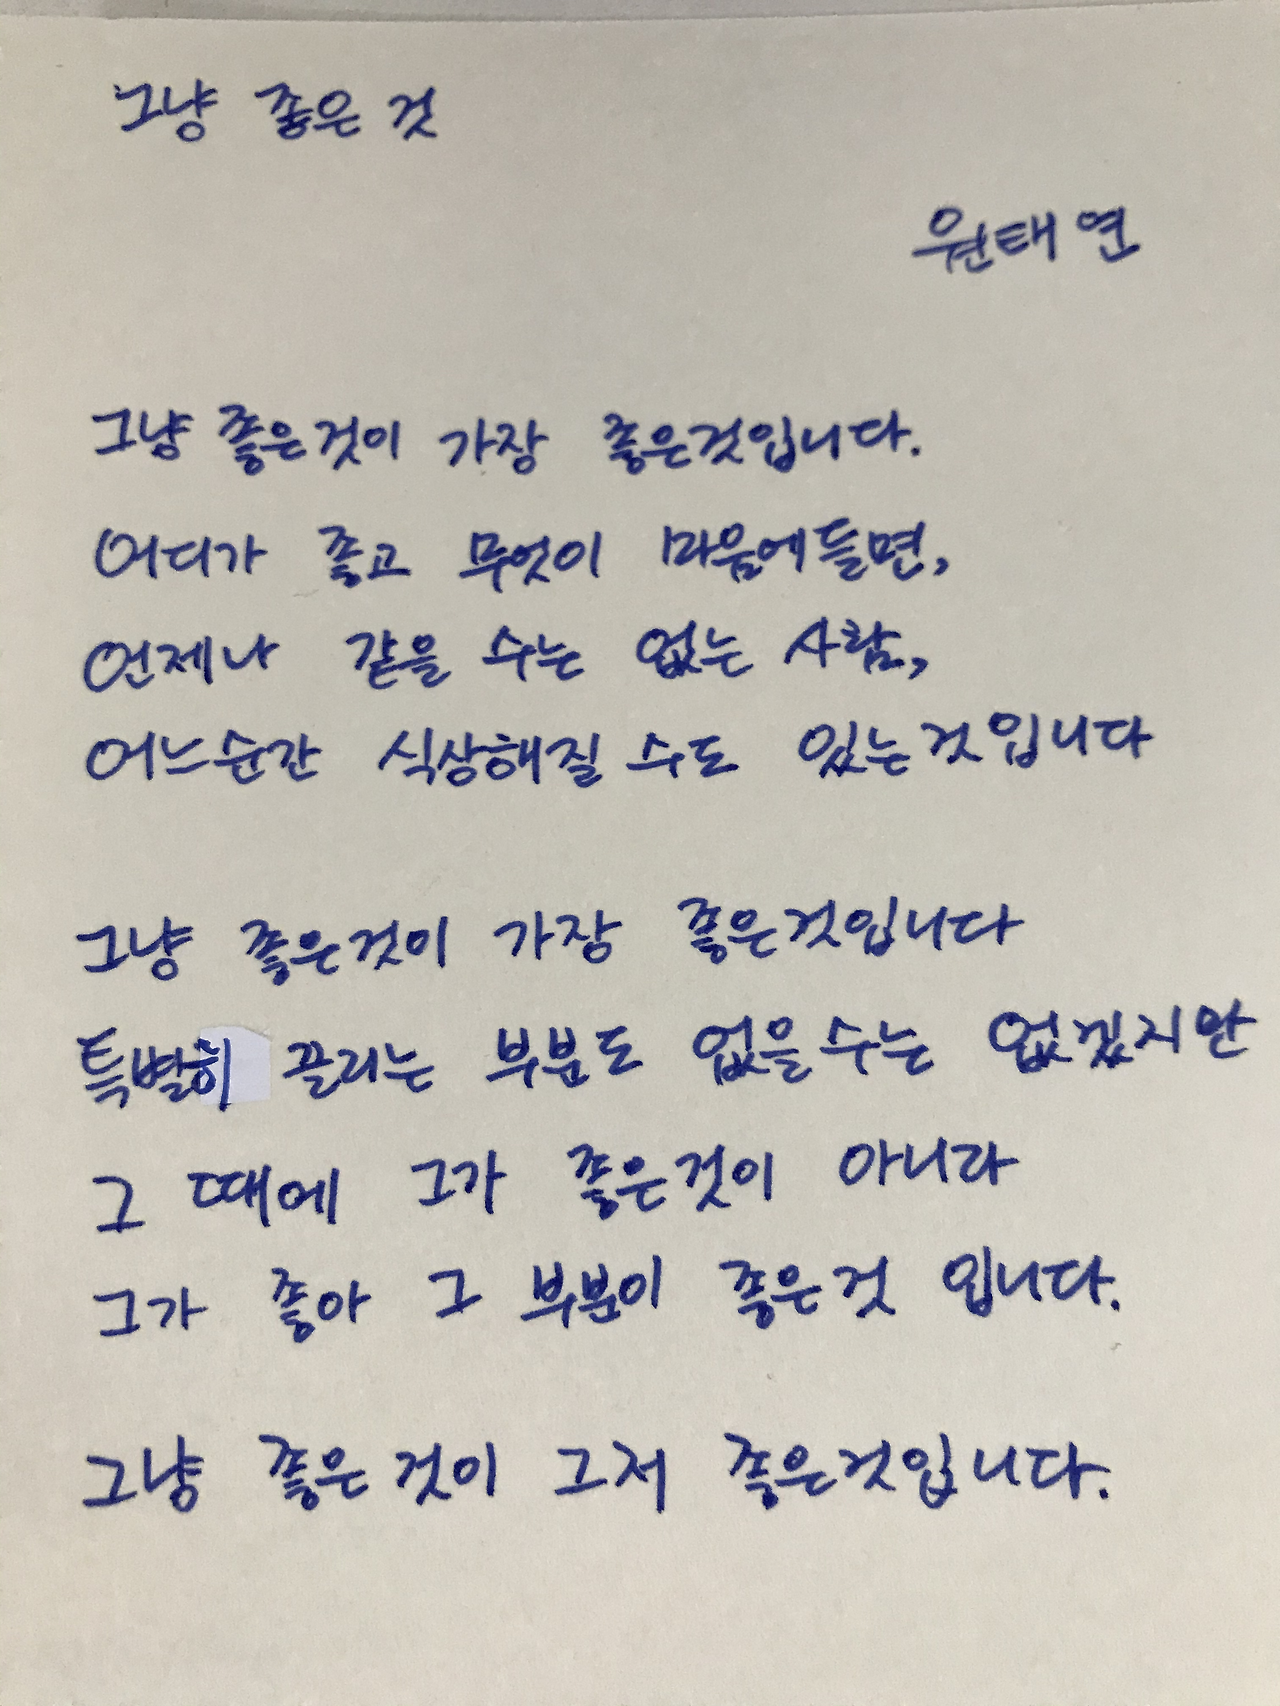 그냥 좋은 것
원태연
그냥 좋은것이 가장 좋은것입니다.
어디가 좋고 무엇이 마음에들면,
언제나 같을 수는 없는 사람,
어느순간 식상해질 수도 있는것입니다
그냥 좋은것이 가장 좋은것입니다
특별히 끌리는 부분도 없을수는 없겠지만
그 때에 그가 좋은것이 아니라
그가 좋아 그 부분이 좋은것 입니다.
그냥 좋은것이 그저 좋은것입니다.